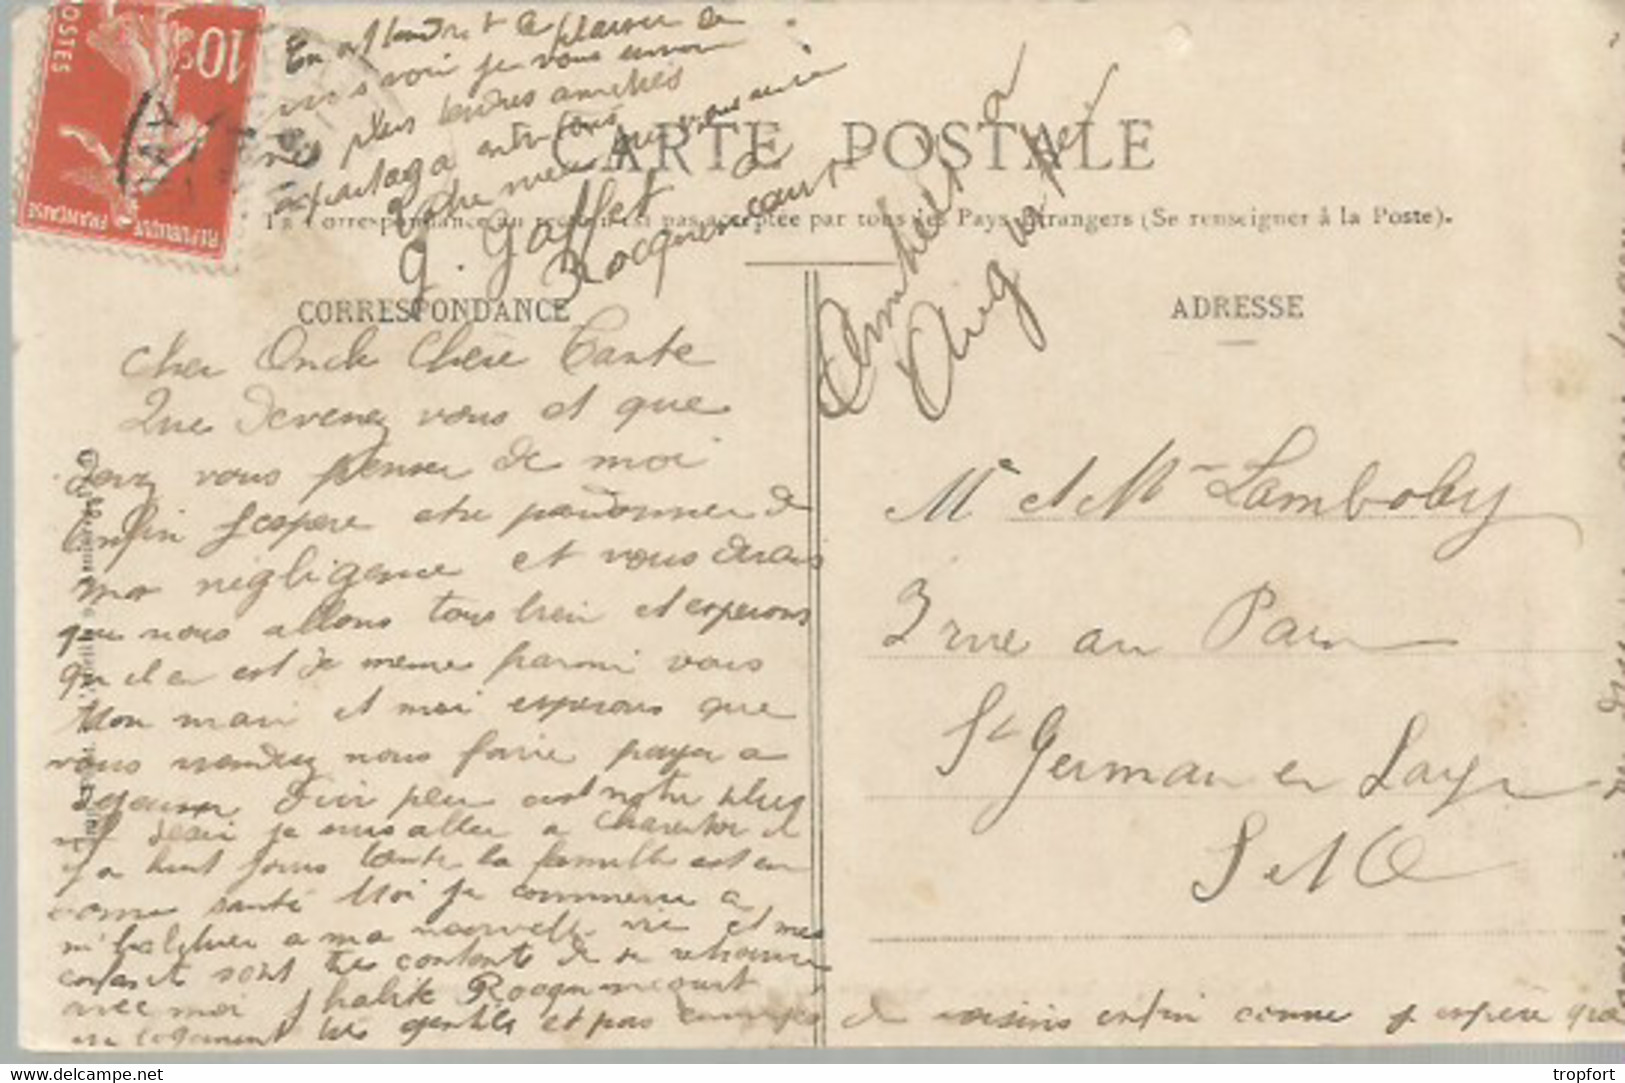 POSTES
10c
REPUBLIQUE FRANÇAISE
En attendant le plaisir de
vous voir je vous envoie
mes plus tendres amitiés
a partager entre tous
Votre niece qui vous aime
G. Gaffet
Rocquencourt
Amitiés a
Auguste
CARTE POSTALE
La Correspondance au recto n'est pas acceptée par tous les Pays Etrangers (Se renseigner à la Poste).
CORRESPONDANCE
ADRESSE
Cher Oncle Chère Tante
Que devenez vous et que
devez vous penser de moi
Enfin j'espere etre pardonner de
ma négligence et vous dirais
que nous allons tous bien et esperons
qu'il en est de meme parmi vous
Mon mari et moi esperons que
vous viendrez nous faire
d'ici peu c'est notre plus
desir je suis aller a Charenton il
y a huit jours toute la famille est en
bonne santé Moi je commence a
m'habituer a ma nouvelle vie et mes
enfants sont tres contents de se retrouver
avec moi J habite Rocquencourt
un logement tres gentil et pas
de voisins enfin comme j espère que
Mr et Mme Lamboley
3 rue au Pain
St Germain en Laye
S et O
www.delcampe.net
tropfort